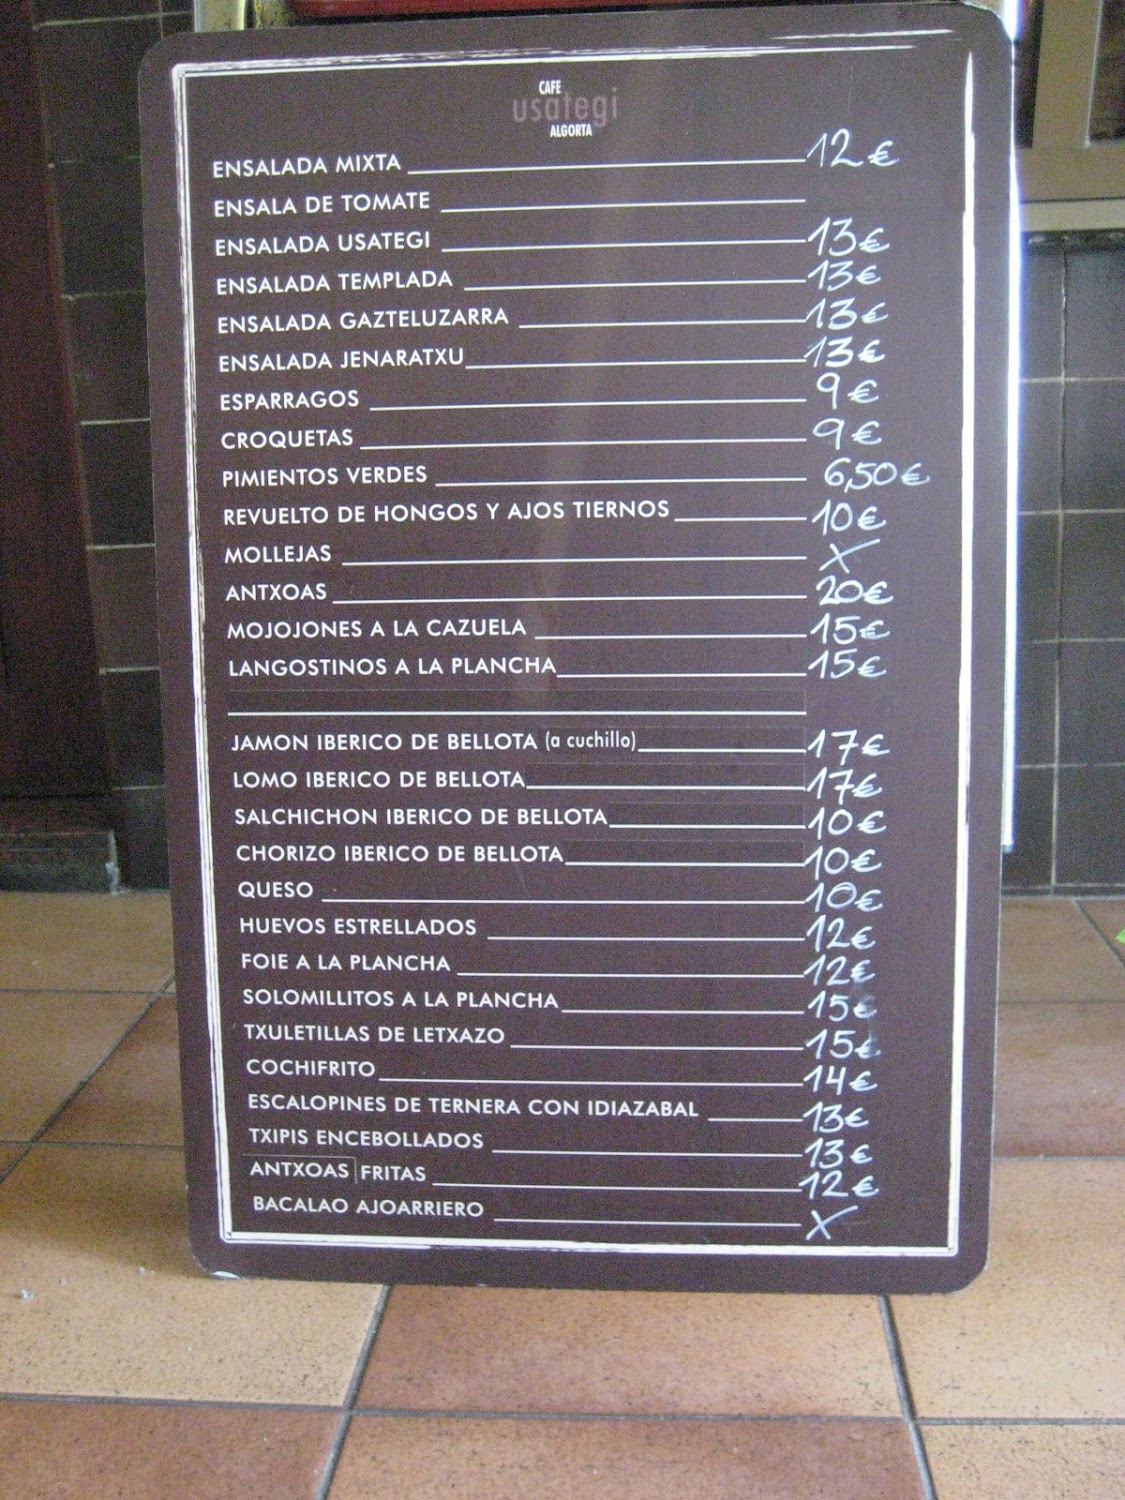 CAFE
usategi
ALGORTA
ENSALADA MIXTA 12 €
ENSALA DE TOMATE
ENSALADA USATEGI 13 €
ENSALADA TEMPLADA 13 €
ENSALADA GAZTELUZARRA 13 €
ENSALADA JENARATXU 13 €
ESPARRAGOS 9 €
CROQUETAS 9 €
PIMIENTOS VERDES 6,50 €
REVUELTO DE HONGOS Y AJOS TIERNOS 10 €
MOLLEJAS X
ANTXOAS 20 €
MOJOJONES A LA CAZUELA 15 €
LANGOSTINOS A LA PLANCHA 15 €
JAMON IBERICO DE BELLOTA (a cuchillo) 17 €
LOMO IBERICO DE BELLOTA 17 €
SALCHICHON IBERICO DE BELLOTA 10 €
CHORIZO IBERICO DE BELLOTA 10 €
QUESO 10 €
HUEVOS ESTRELLADOS 12 €
FOIE A LA PLANCHA 12 €
SOLOMILLITOS A LA PLANCHA 15 €
TXULETILLAS DE LETXAZO 15 €
COCHIFRITO 14 €
ESCALOPINES DE TERNERA CON IDIAZABAL 13 €
TXIPIS ENCEBOLLADOS 13 €
ANTXOAS FRITAS 12 €
BACALAO AJOARRIERO X